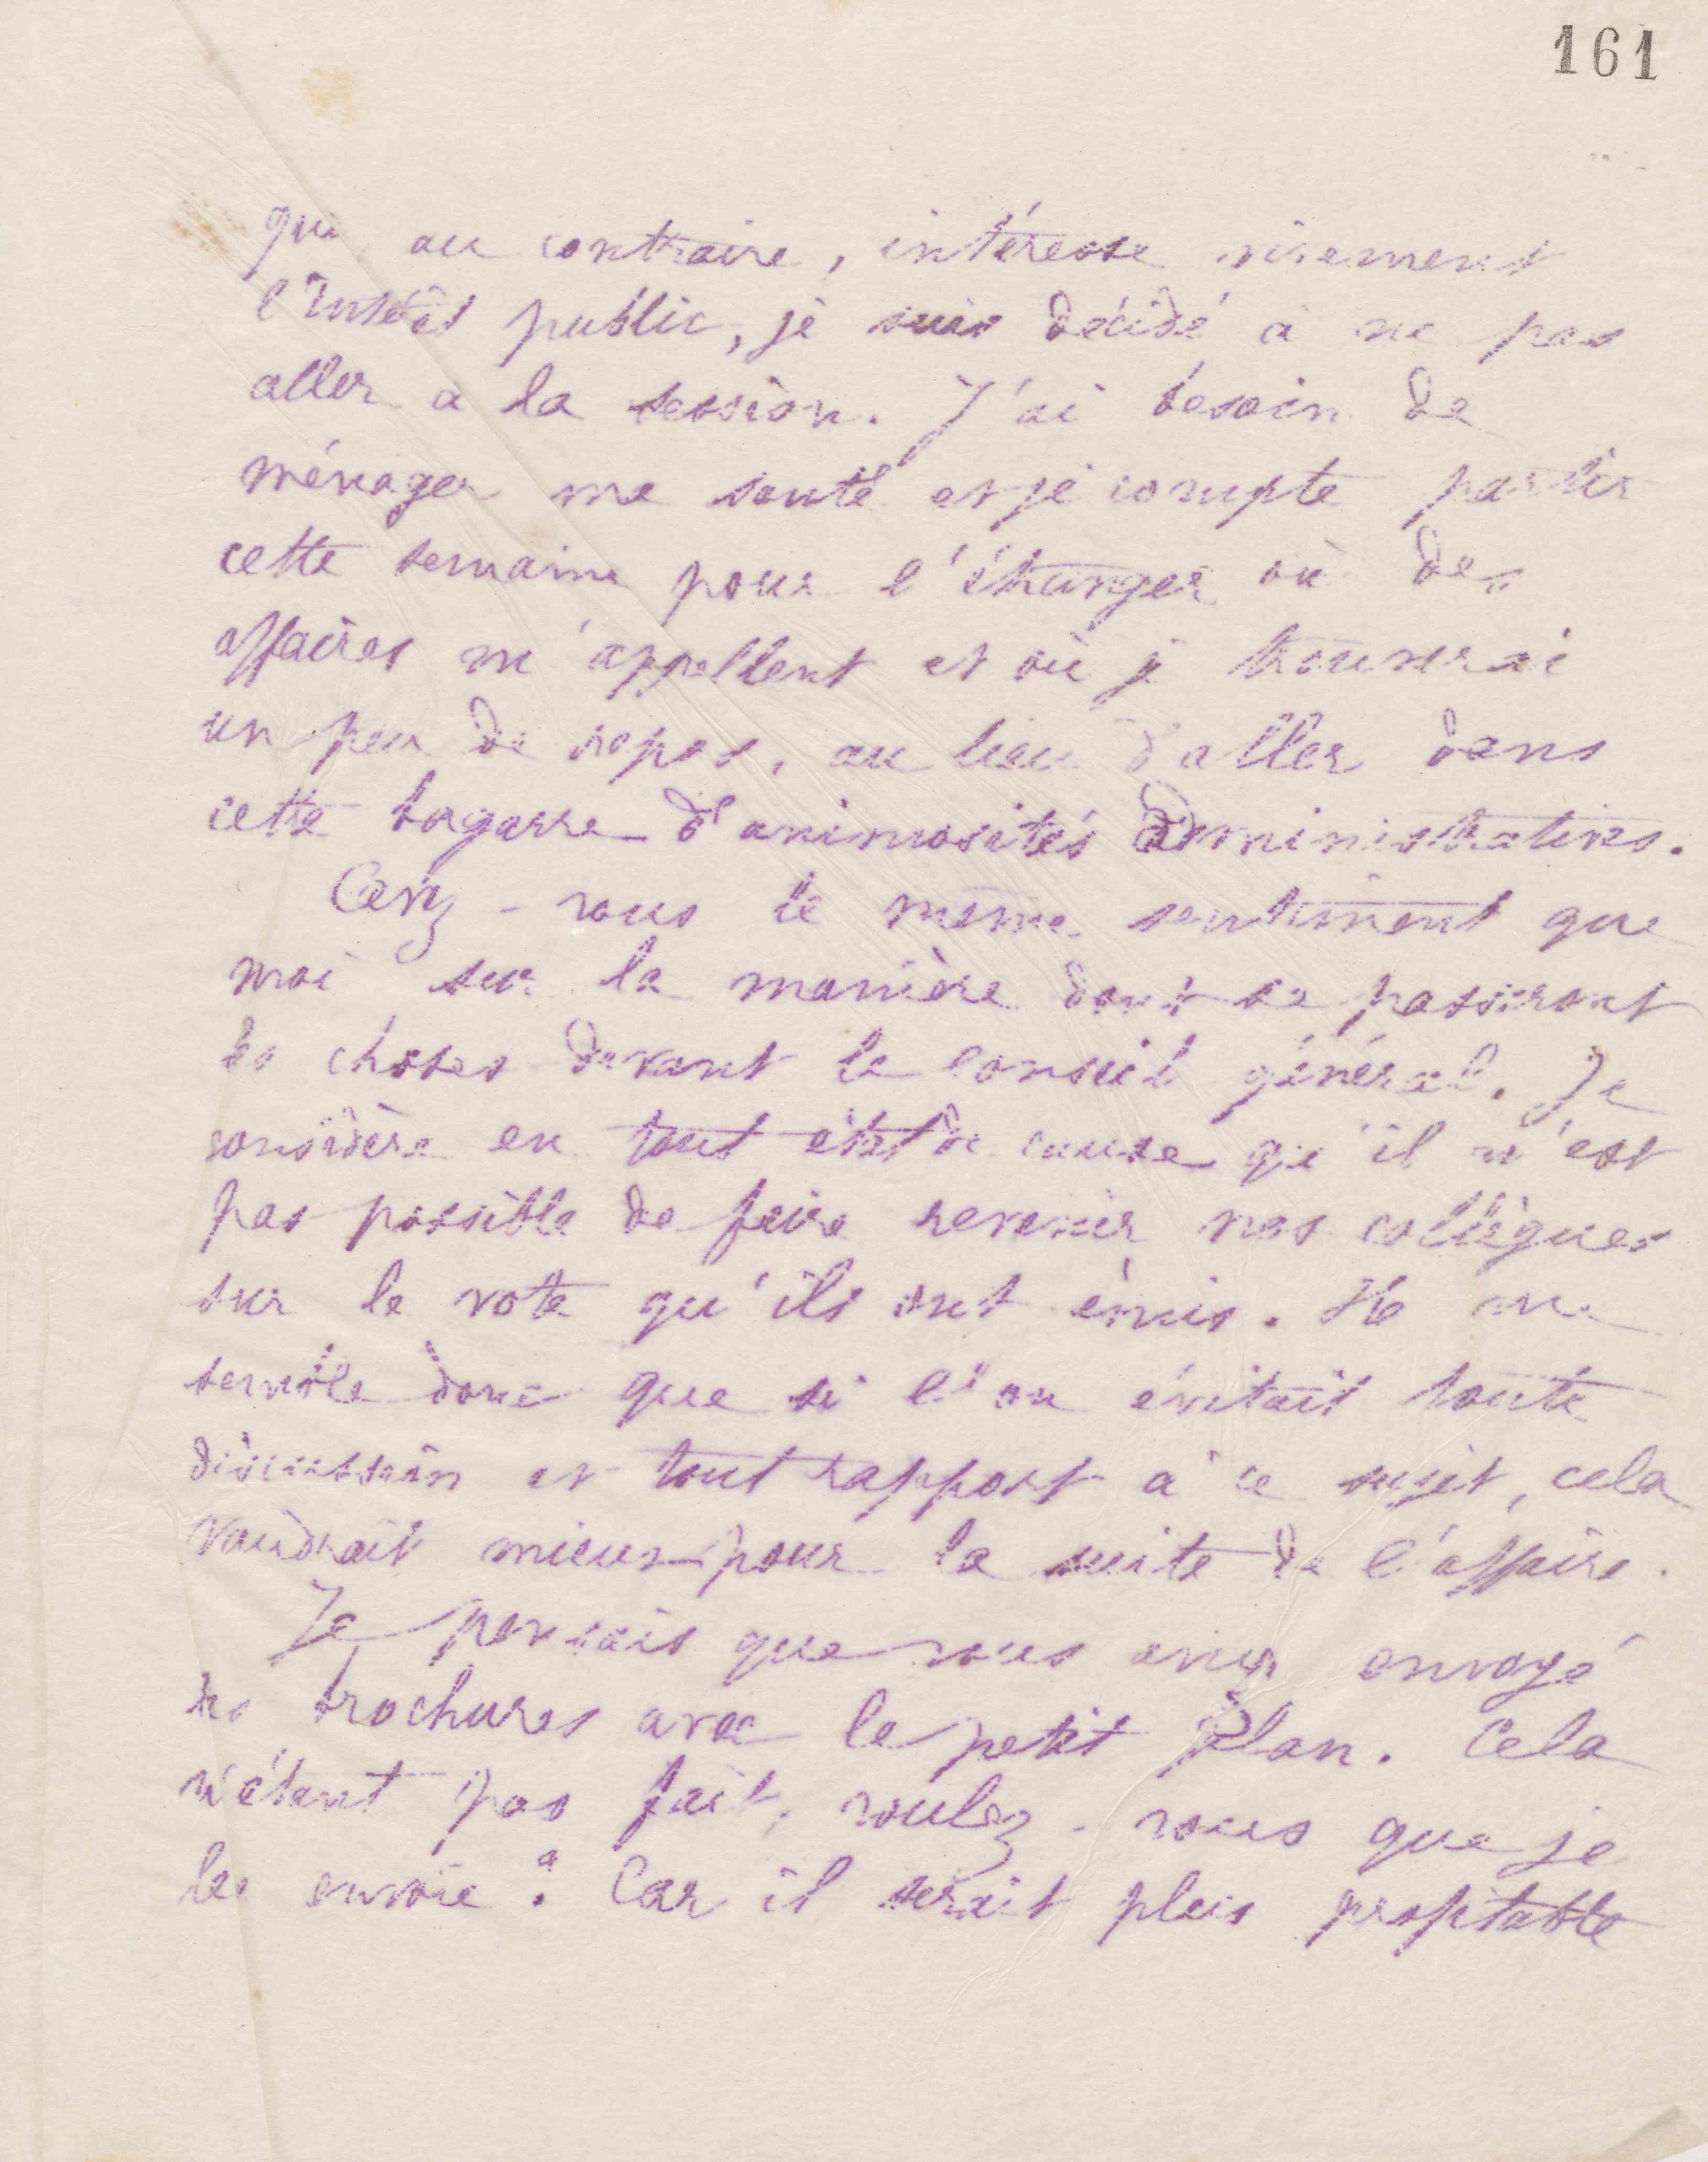 161
qui au contraire, intéresse vivement
l'Intérêt public, je suis décidé à ne pas
aller a la session. J'ai besoin de
ménager ma santé et je compte partir
cette semaine pour l'étranger où des
affaires m'appellent et où je trouverai
un peu de repos, au lieu d'aller dans
cette bagarre d'animosités administratives.
- vous le même sentiment que
moi sur la manière dont se passeront
les choses devant le Conseil général. Je
considère en tout état de cause qu'il n'est
pas possible de faire revenir nos collègues
sur le vote qu'ils ont émis. Il me
semble donc que si l'on évitait toute
discussion et tout rapport à ce sujet, cela
vaudrait mieux pour la suite de l'affaire.
Je pensais que vous aviez envoyé
les brochures avec le petit plan. Cela
n'étant pas fait, voulez-vous que je
les envoie ? Car il serait plus profitable